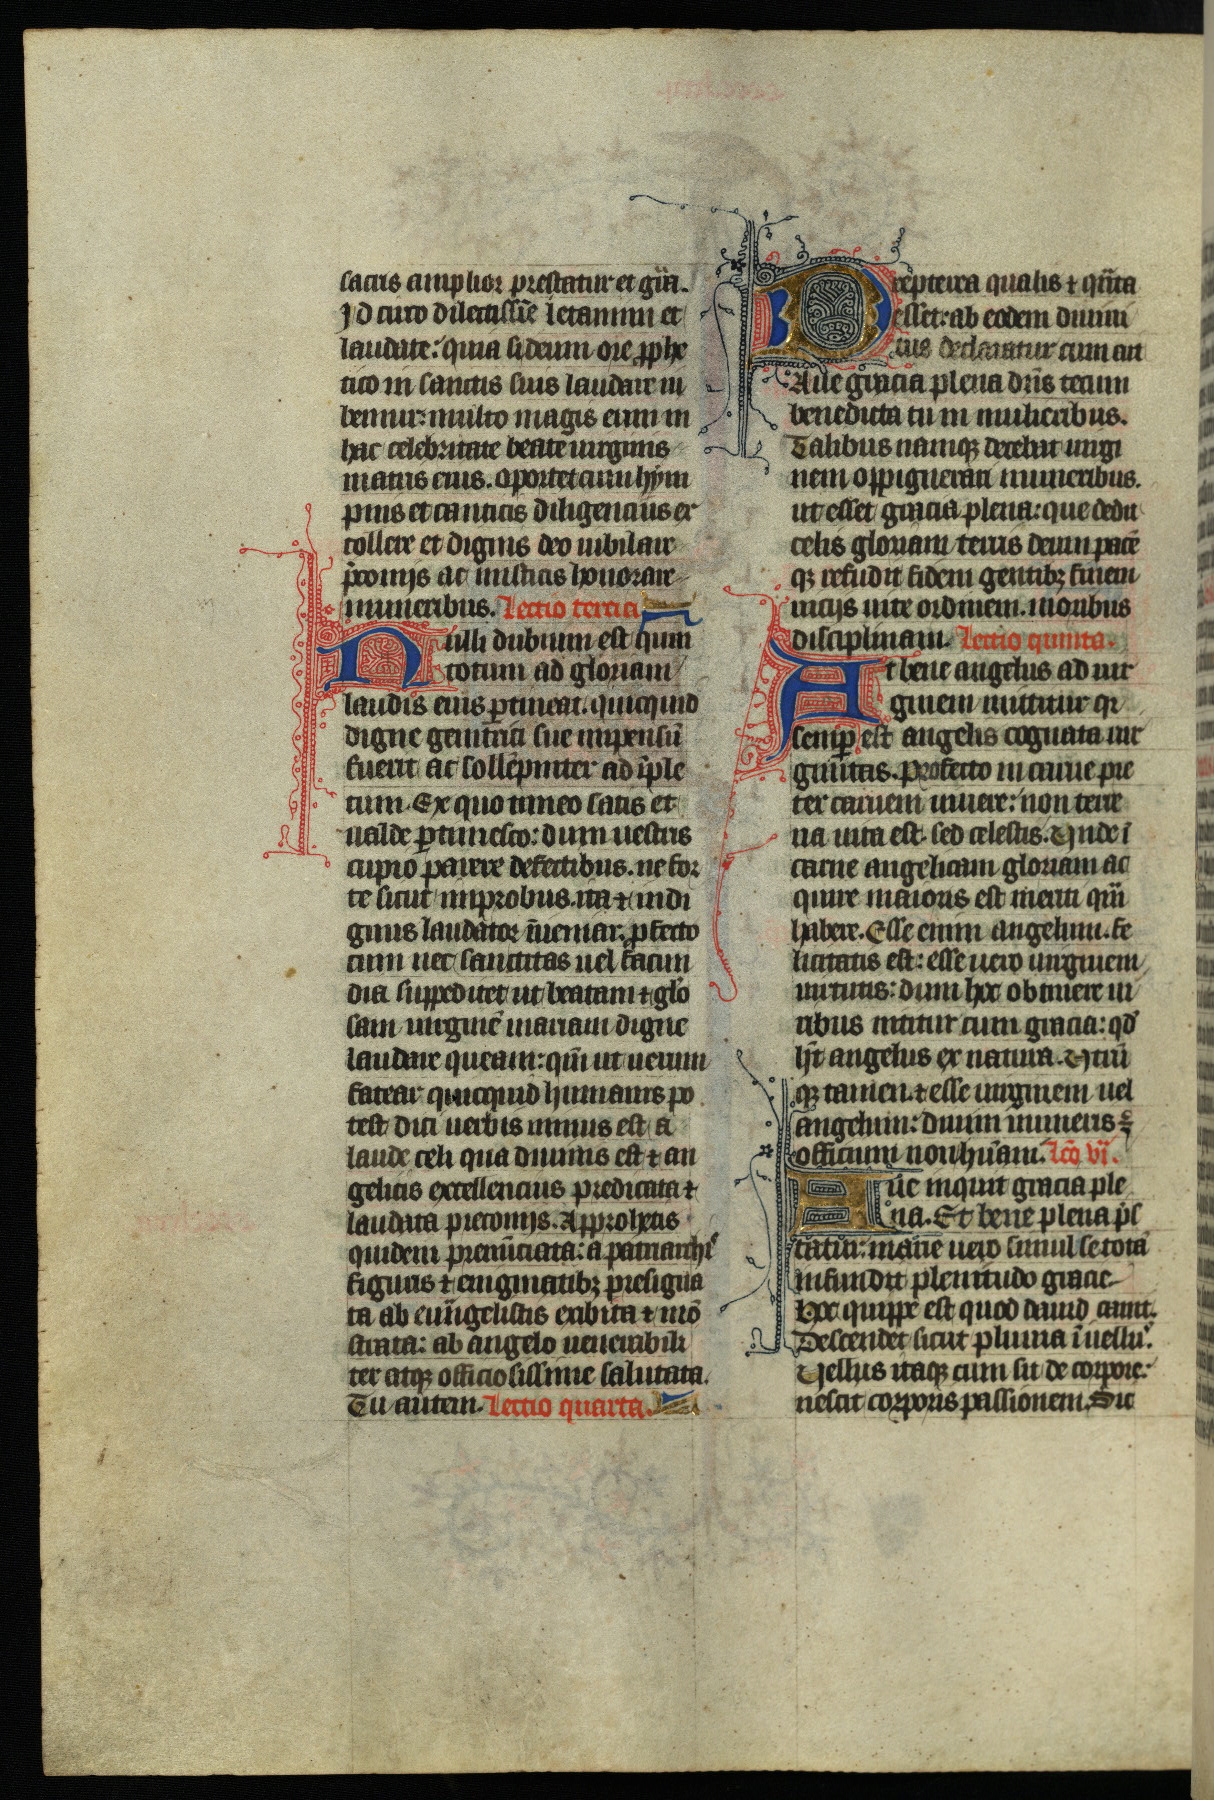 sacris amplior prestatur et gr̃a.
Idcirco dilectissĩe letamini et
laudate: quia si deum ore ꝓphe
tico in sanctis suis laudare iu
bemur: multo magis eum in
hac celebritate beate uirginis
matris eius. oportet cum hym
pnis et canticis diligencius ex
tollere et dignis deo iubilare
p̃conijs ac misticis honorare
muneribus. Lectio tercia
Nulli dubium est quin
totum ad gloriam
laudis eius ꝑtineat. quicquid
digne genitrici sue impensũ
fuerit ac sollẽpniter ad ĩple
tum. Ex quo timeo satis et
ualde ꝑtimesco: dum uestris
cupio parere defectibus. ne for
te sicut improbus. ita ⁊ indi
gnus laudator ĩueniar. ꝓfecto
cum nec sanctitas uel facun
dia suppeditet ut beatam ⁊ glo
sam uirginẽ mariam digne
laudare queam: qm̃ ut uerum
fatear quicquid humanis po
test dici uerbis minus est a
laude celi qua diuinis est ⁊ an
gelicis excellencius predicata ⁊
laudata preconijs. A prophetis
quidem prenũciata: a patriarchis
figuris ⁊ enigmatibꝫ presigna
ta ab euũgelistis exibita ⁊ mõ
strata: ab angelo uenerabili
ter atqꝫ officiosissime salutata.
Tu autem. Lectio quarta.
Prepterea qualis ⁊ qũta
esset: ab eodem diuini
tus declaratur cum ait
Aue gracia plena dñs tecum
benedicta tu in mulieribus.
Talibus namqꝫ decebat uirgi
nem oppignerari muneribus.
ut esset gracia plena: que dedit
celis gloriam terris deum pacẽ
qꝫ refudit fidem gentibꝫ finem
uicijs uite ordinem. moribus
disciplinam. Lectio quinta.
At bene angelus ad uir
ginem mittitur qr
semꝑ est angelis cognata uir
ginitas. Profecto in carne pre
ter carnem uiuere: non terre
na uita est. sed celestis. Unde ĩ
carne angelicam gloriam ac
quire maioris est meriti qm̃
habere. Esse enim angelum. fe
licitatis est: esse uero uirginem
uirtutis: dum hoc obtinere ui
ribus nititur cum gracia: qd̃
hỹt angelus ex natura. Utrũ
qꝫ tamen. ⁊ esse uirginem uel
angelum: diuini muneris ⁊
officium non hũani. Lc̃o vi.
Aue inquit gracia ple
na. Et bene plena p̃s
tatur: marie uero simul se tota
infundit plenitudo gracie
Hoc quippe est quod dauid canit.
Descendet sicut pluuia ĩ uellus
Uellus itaqꝫ cum sit de corpore:
nescit corporis passionem. Sic